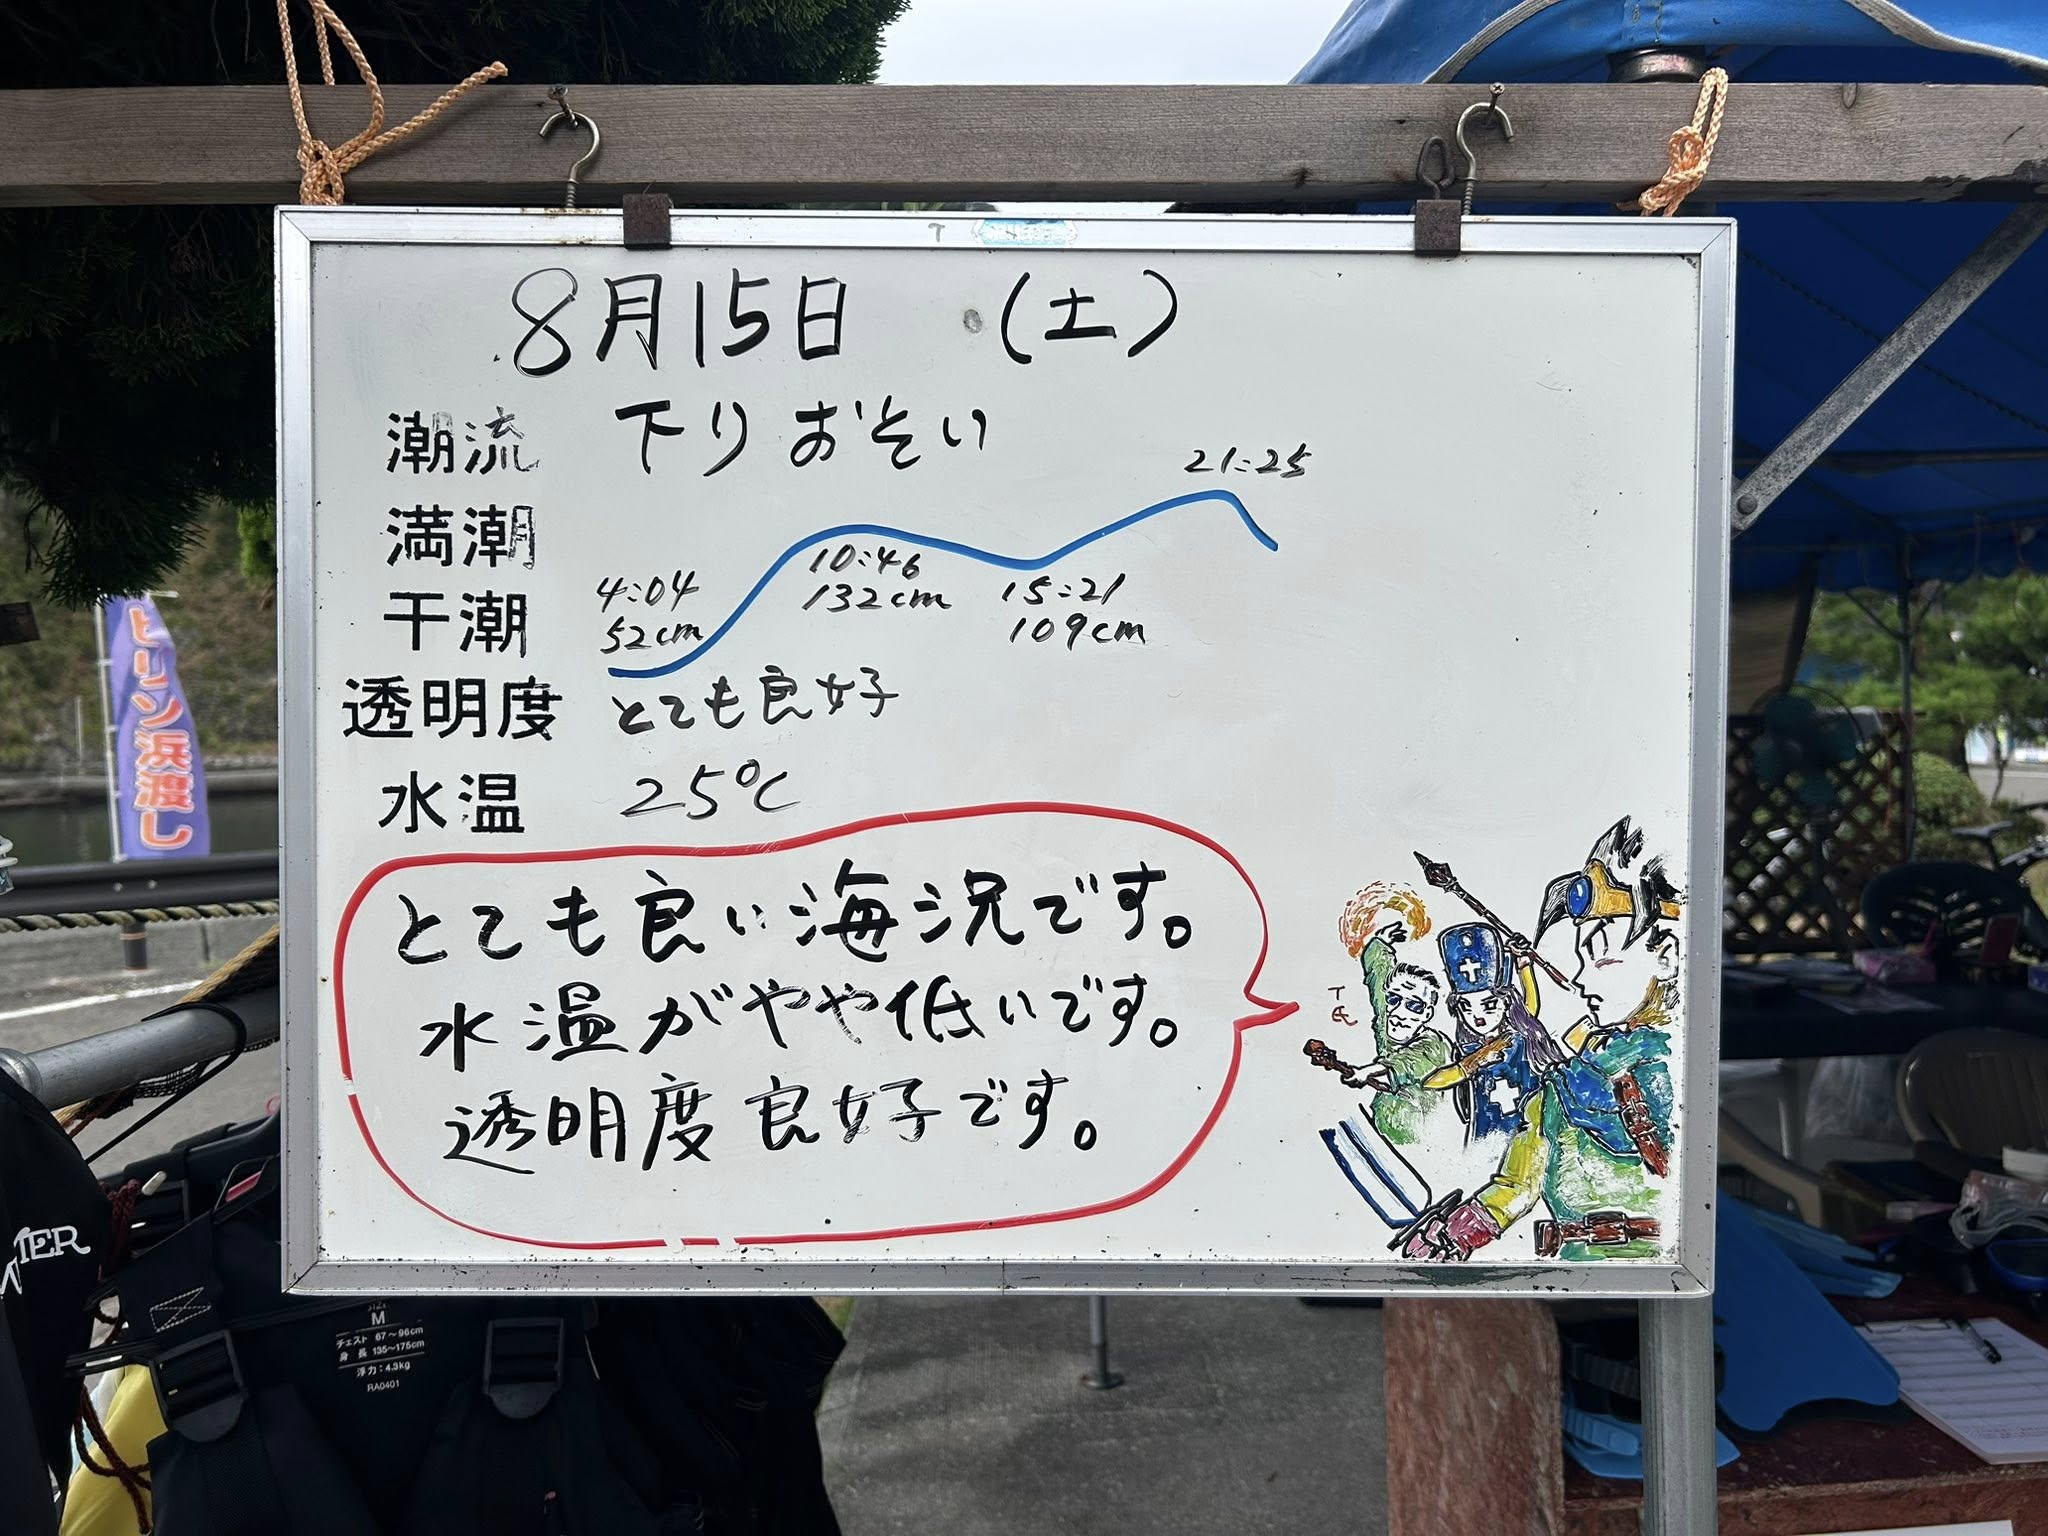 8月15日 (土)
潮流 下り おそい
21:25
満潮
10:46
132cm
干潮
4:04
52cm
15:21
109cm
透明度 とても良好
水温 25℃
とても良い海況です。
水温がやや低いです。
透明度良好です。
T氏
トリン浜渡し
M
チェスト 67～96cm
身長 135～175cm
浮力:4.3kg
RA0401